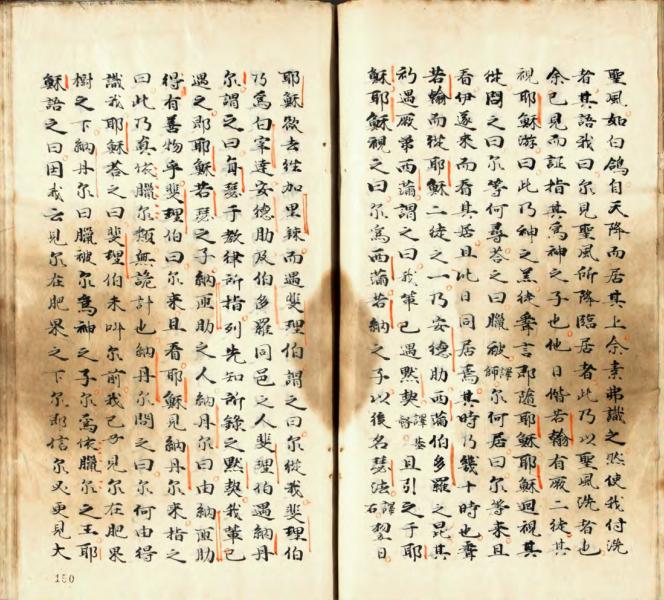 聖風如白鴿自天降而居其上余素弗識之然使我付洗
者其語我曰尔見聖風所降臨居者此乃以聖風洗者也
余已見而証指其為神之子也他日偕若翰有厥二徒其
視耶穌游曰此乃神之羔徒聽言即隨耶穌耶穌回視其
徙問之曰尔等何尋荅之曰臘被譯師尔何居曰尔等來且
看伊遂來而看其居且此日同居焉其時乃幾十時也聽
若翰而從耶穌二徒之一乃安德肋西蒲伯多羅之昆其
初遇厥弟西蒲謂之曰我等已遇黙契譯且引之于耶
穌耶穌視之曰尔為西蒲若納之子以後名瑟法譯石翌日
耶穌欲去徃加里辣而遇斐理伯謂之曰尔從我斐理伯
乃為白宰達安德肋及伯多羅同邑之人斐理伯遇納丹
尔謂之曰每瑟于教律所指列先知所錄之黙契我輩已
遇之即耶穌若瑟之子納匝肋之人納丹尔曰由納匝肋
得有善物乎斐理伯曰尔来且看耶穌見納丹尔来指之
曰此乃真依臘尔類無詭計也納丹尔問之曰尔何由得
識我耶穌荅之曰斐理伯未呌尔前我已見尔在肥果
樹之下納丹尔曰臘被尔為神之子尔為依臘尔之王耶
穌語之曰因我言見尔在肥果之下尔即信尔又更見大
150